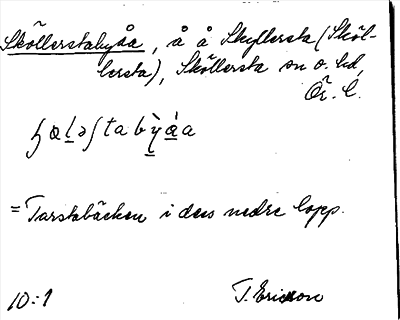 Sköllerstabyåa, å å Skyllersta (Sköl-
lersta), Sköllersta sn o. hd,
Ör. l.
ɧæləʃtabỳåa
= Tarstabäcken i dess nedre lopp.
10:1 T. Ericsson